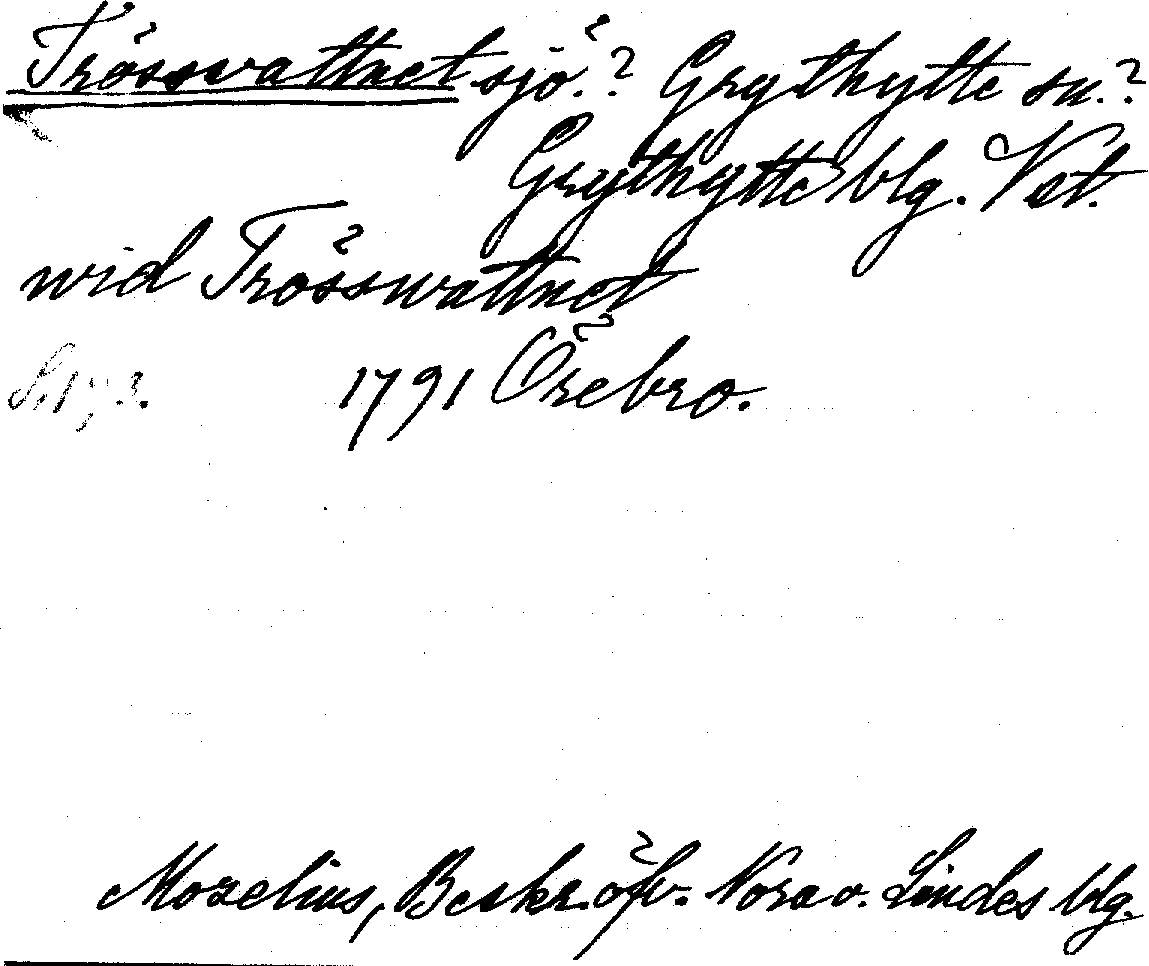 Trösswattnet sjö.? Grythytte sn.?
Grythytte blg. Vet.
wid Trösswattnet
S. 173. 1791 Örebro.
Mozelius, Beskr. öfv. Nora o. Lindes blg.